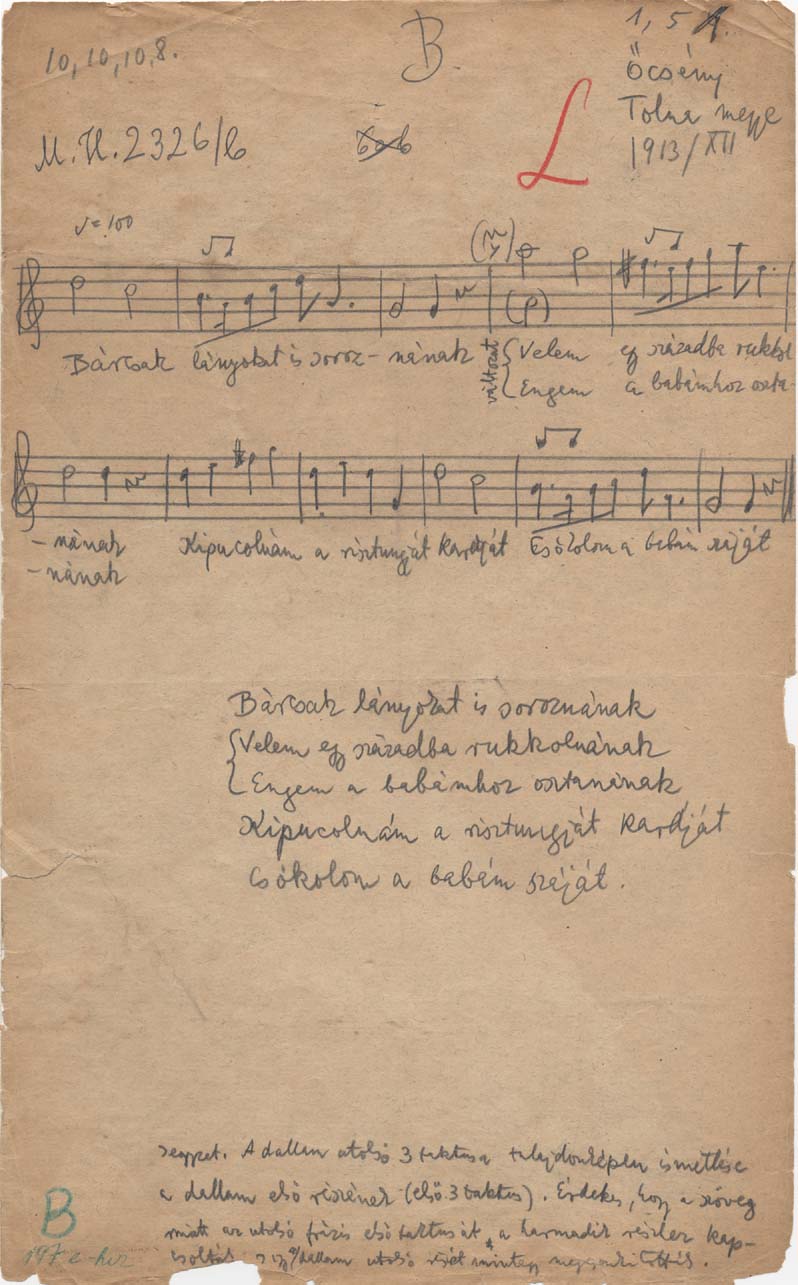 10, 10, 10, 8.
B.
1, 5
Őcsény
Tolna megye
1913/XII
M.H. 2326/b
L
♩=100
Bárcsak lányokat is soroz-nának
változat
Velem egy századba rukkol
Engem a babámhoz oszta-
-nának Kipucolnám a risztungját kardját Csókolom a babám száját
-nának
Bárcsak lányokat is soroznának
Velem egy századba rukkolnának
Engem a babámhoz osztanának
Kipucolnám a risztungját kardját
Csókolom a babám száját.
Jegyzet. A dallam utolsó 3 taktusa tulajdonképen ismétlése
a dallam első részének (első 3 taktus). Érdekes, hogy a szöveg
miatt az utolsó frázis első taktusát a harmadik részhez kap-
csolták s így a dallam utolsó részét mintegy
B